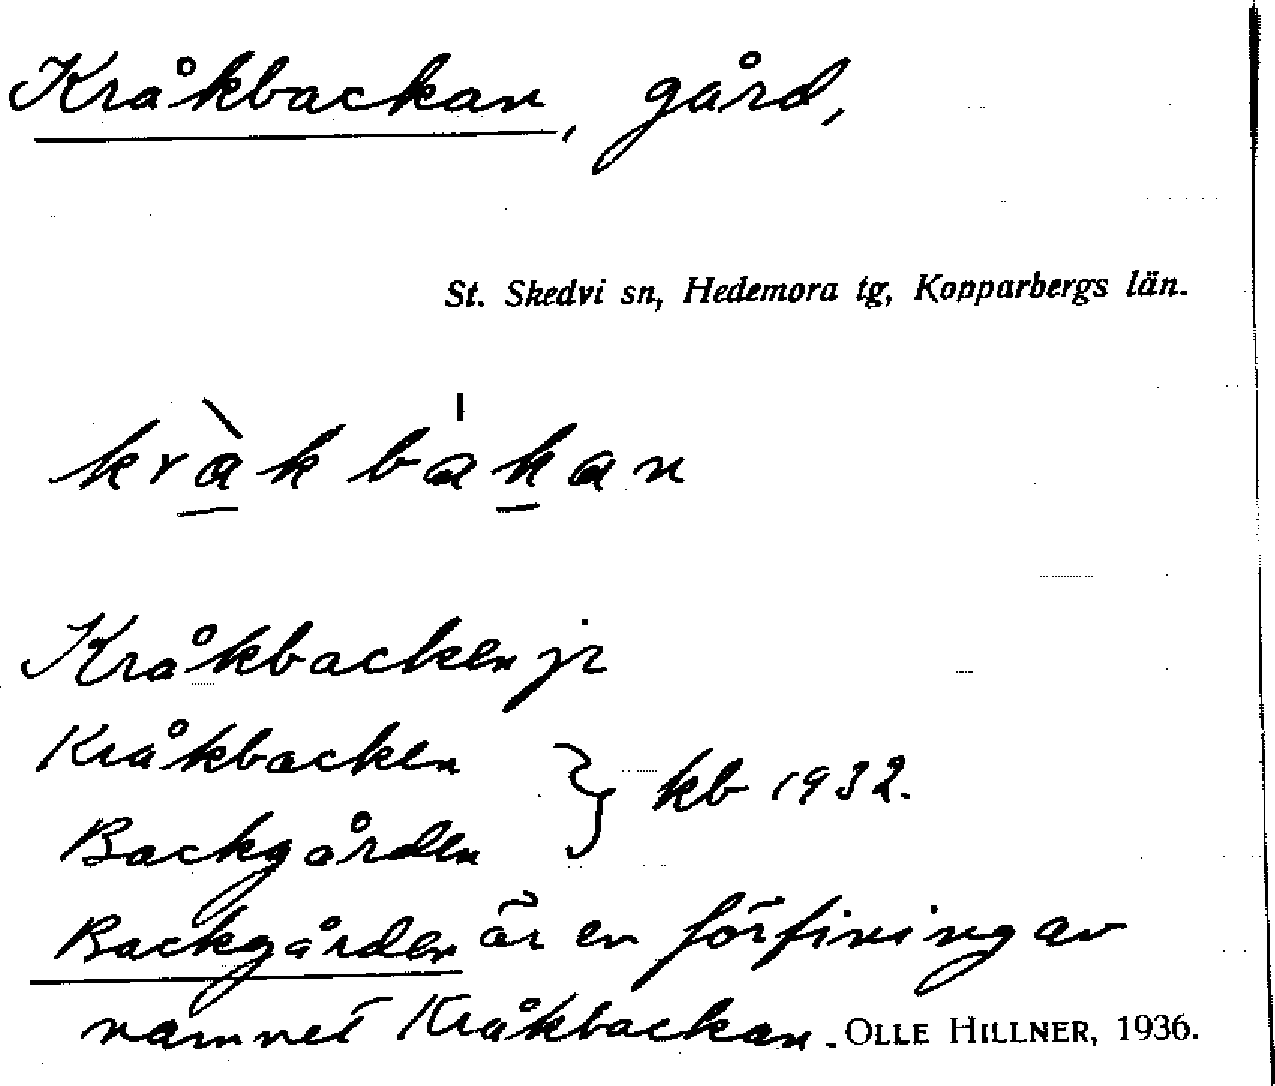 Kråkbackan, gård,
St. Skedvi sn, Hedemora tg, Kopparbergs län.
kràk bákan
Kråkbacken jr
Kråkbacken
Backgården } kb 1932.
Backgården är en förfining av
namnet Kråkbackan. OLLE HILLNER, 1936.